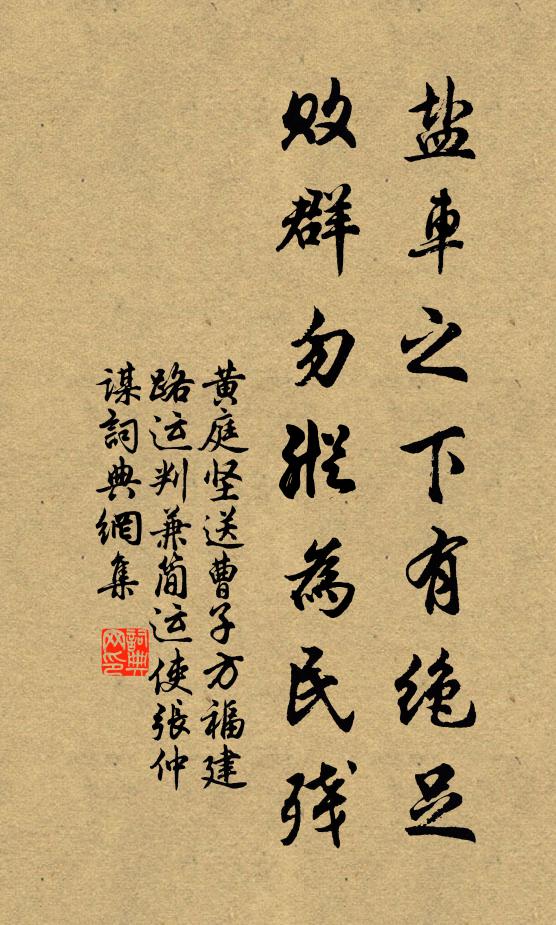 盐车之下有绝足
败群勿纵为民残
黄庭坚送曹子方福建
路运判兼简运使张仲
谋词典网集
词典
网印